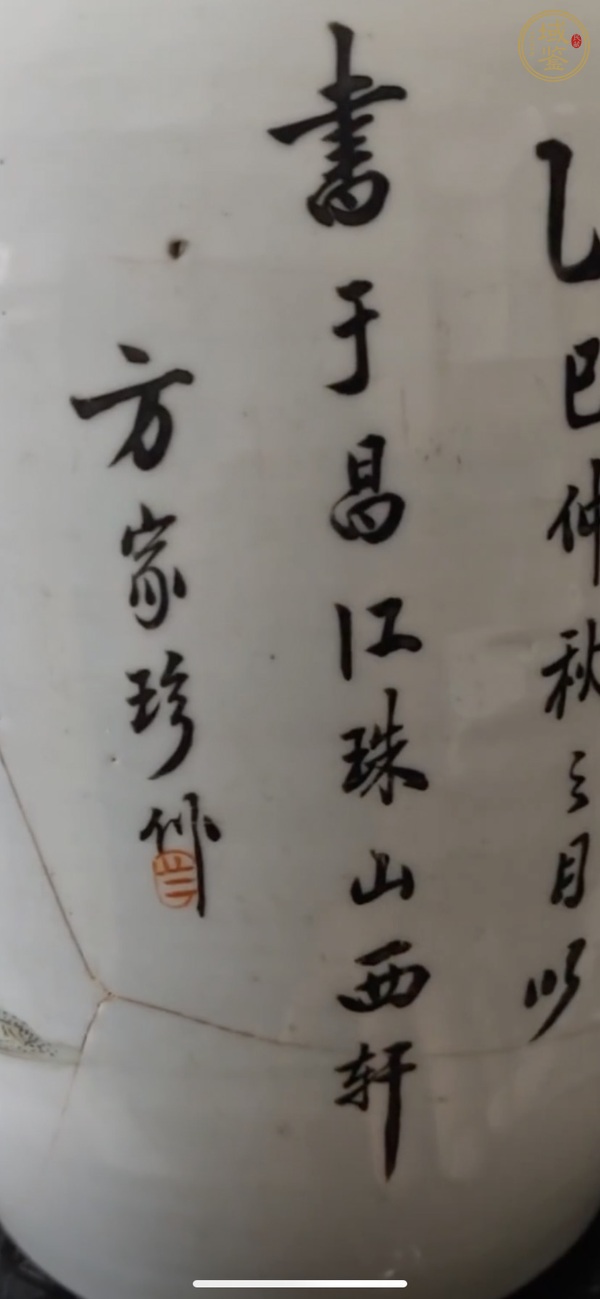 乙巳仲秋之月以
書于昌江珠山西轩
方家珍作